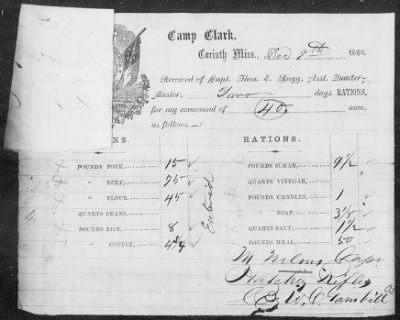 Camp Clark,
Corinth Miss., Dec 9th 186
Received of Capt. Thos. E. Bugg, Asst. Quarter-
Master, Two days RATIONS,
for my command of 40 men,
as follows
NS. RATIONS.
POUNDS PORK, 15 POUNDS SUGAR, 9 1/2
" BEEF, 75 QUARTS VINEGAR,
" FLOUR, 45 POUNDS CANDLES, 1
QUARTS BEANS, " SOAP, 3
POUNDS RICE, 8 QUARTS SALT, 1 1/2
" COFFEE, POUNDS MEAL, 50
Entered
Capt
Rifles
By W. C. Gambill